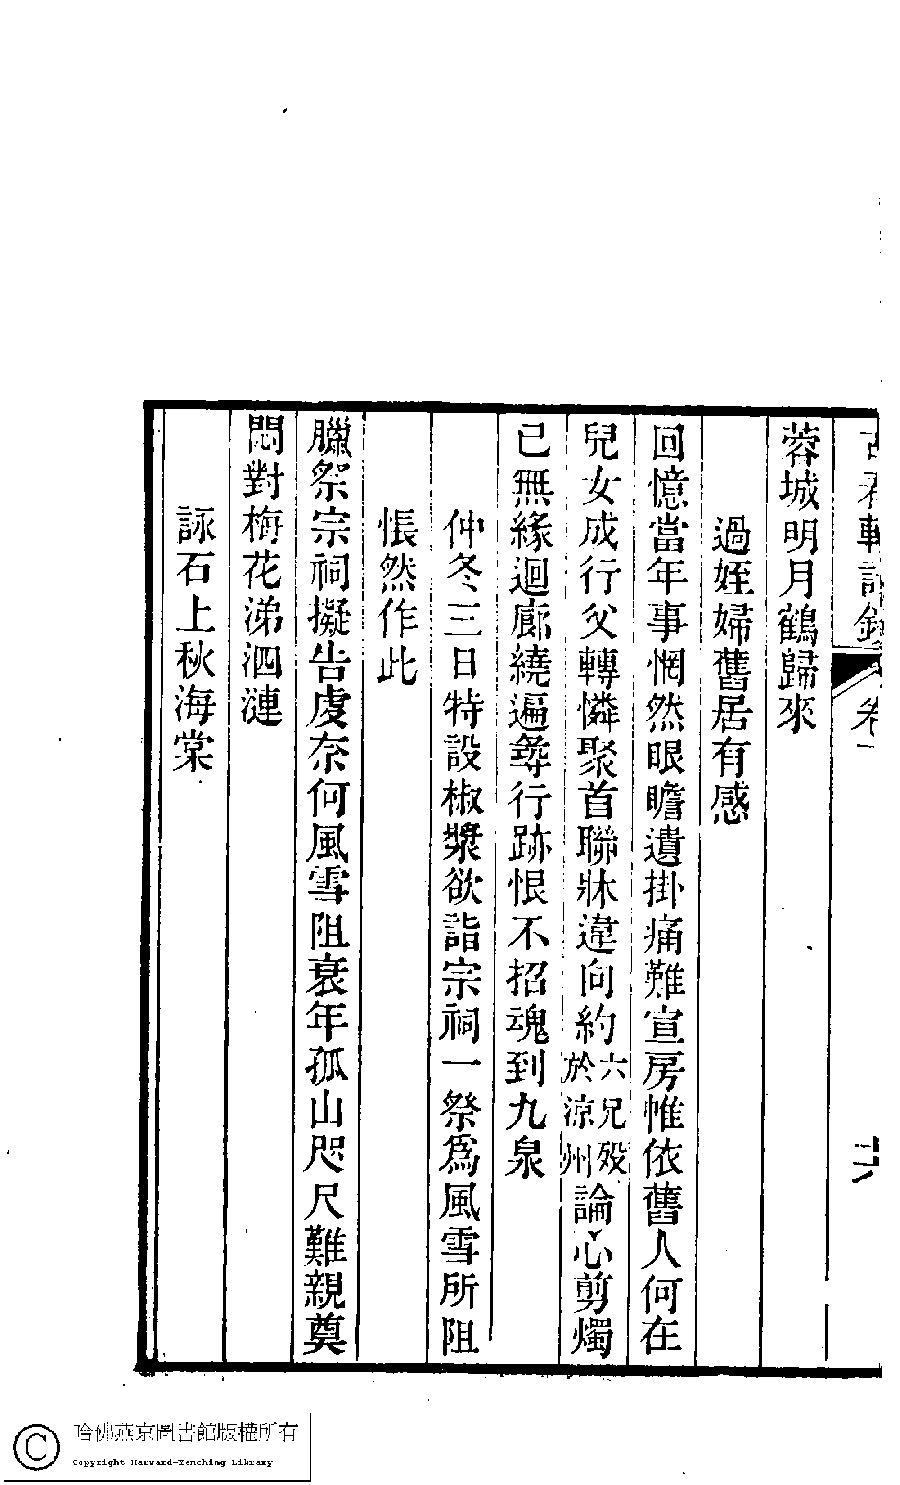 蓉城明月鶴歸來
過姪婦舊居有感
回憶當年事惘然眼瞻遺掛痛難宣房帷依舊人何在
兒女成行父轉憐聚首聯牀違向約六兄歿於涼州論心剪燭
已無緣迴廊繞遍尋行跡恨不招魂到九泉
仲冬三日特設椒漿欲詣宗祠一祭爲風雪所阻
悵然作此
臘祭宗祠擬告虔奈何風雪阻衰年孤山咫尺難親奠
悶對梅花涕泗漣
詠石上秋海棠
卷一
哈佛燕京圖書館版權所有
Copyright Harvard-Yenching Library